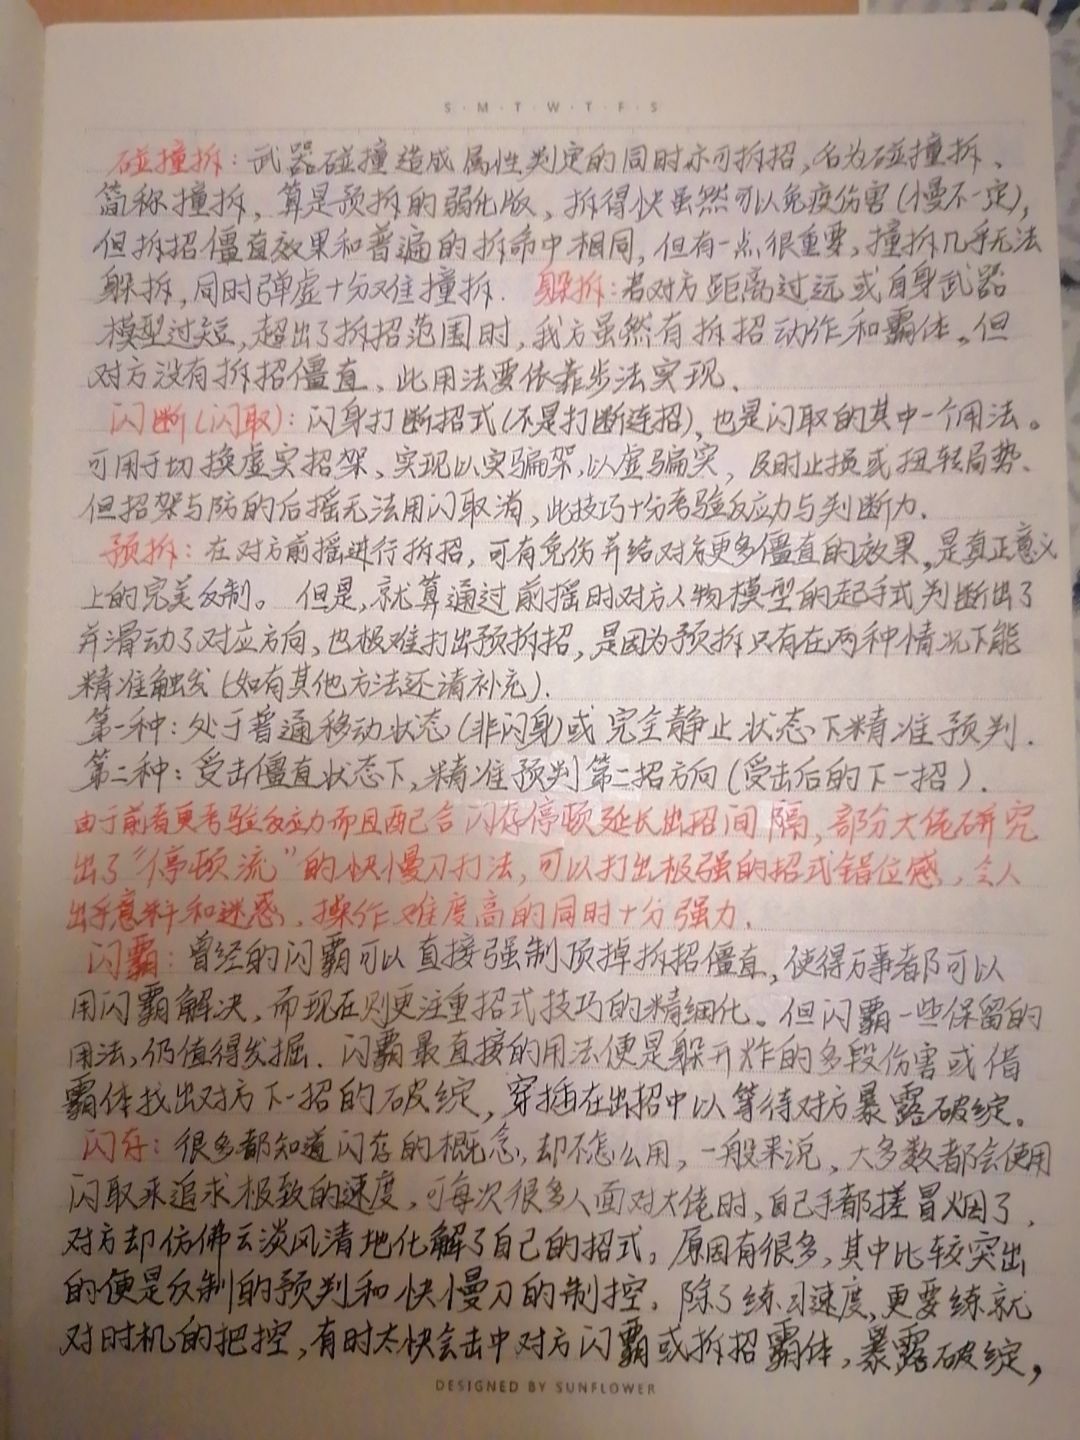 S·M·T·W·T·F·S
碰撞拆：武器碰撞造成属性判定的同时亦可拆招，名为碰撞拆、
简称撞拆，算是预拆的弱化版，拆得快虽然可以免疫伤害(慢不一定)，
但拆招僵直效果和普遍的拆命中相同，但有一点很重要，撞拆几乎无法
躲拆，同时弹虚十分难撞拆. 躲拆：若对方距离过远或自身武器
模型过短，超出了拆招范围时，我方虽然有拆招动作和霸体。但
对方没有拆招僵直、此用法要依靠步法实现、
闪断(闪取)：闪身打断招式(不是打断连招)，也是闪取的其中一个用法。
可用于切换虚实招架、实现以实骗架，以虚骗实，及时止损或扭转局势、
但招架与防的后摇无法用闪取消，此技巧十分考验反应力与判断力.
预拆：在对方前摇进行拆招，可有免伤并给对方更多僵直的效果，是真正意义
上的完美反制。但是，就算通过前摇时对方人物模型的起手式判断出了
并滑动了对应方向，也极难打出预拆招，是因为预拆只有在两种情况下能
精准触发(如有其他方法还请补充).
第一种：处于普通移动状态(非闪身)或完全静止状态下精准预判.
第二种：受击僵直状态下，精准预判第二招方向(受击后的下一招).
由于前者更考验反应力而且配合闪存停顿延长出招间隔，部分大佬研究
出了“停顿流”的快慢刀打法，可以打出极强的招式错位感，令人
出乎意料和迷惑，操作难度高的同时十分强力.
闪霸：曾经的闪霸可以直接强制顶掉拆招僵直，使得万事都可以
用闪霸解决，而现在则更注重招式技巧的精细化。但闪霸一些保留的
用法，仍值得发掘. 闪霸最直接的用法便是躲开炸的多段伤害或借
霸体找出对方下一招的破绽，穿插在出招中以等待对方暴露破绽。
闪存：很多都知道闪存的概念，却不怎么用，一般来说，大多数都会使用
闪取来追求极致的速度，可每次很多人面对大佬时，自己手都搓冒烟了，
对方却仿佛云淡风清地化解了自己的招式，原因有很多，其中比较突出
的便是反制的预判和快慢刀的制控，除了练习速度，更要练就
对时机的把控，有时太快会击中对方闪霸或拆招霸体，暴露破绽，
DESIGNED BY SUNFLOWER